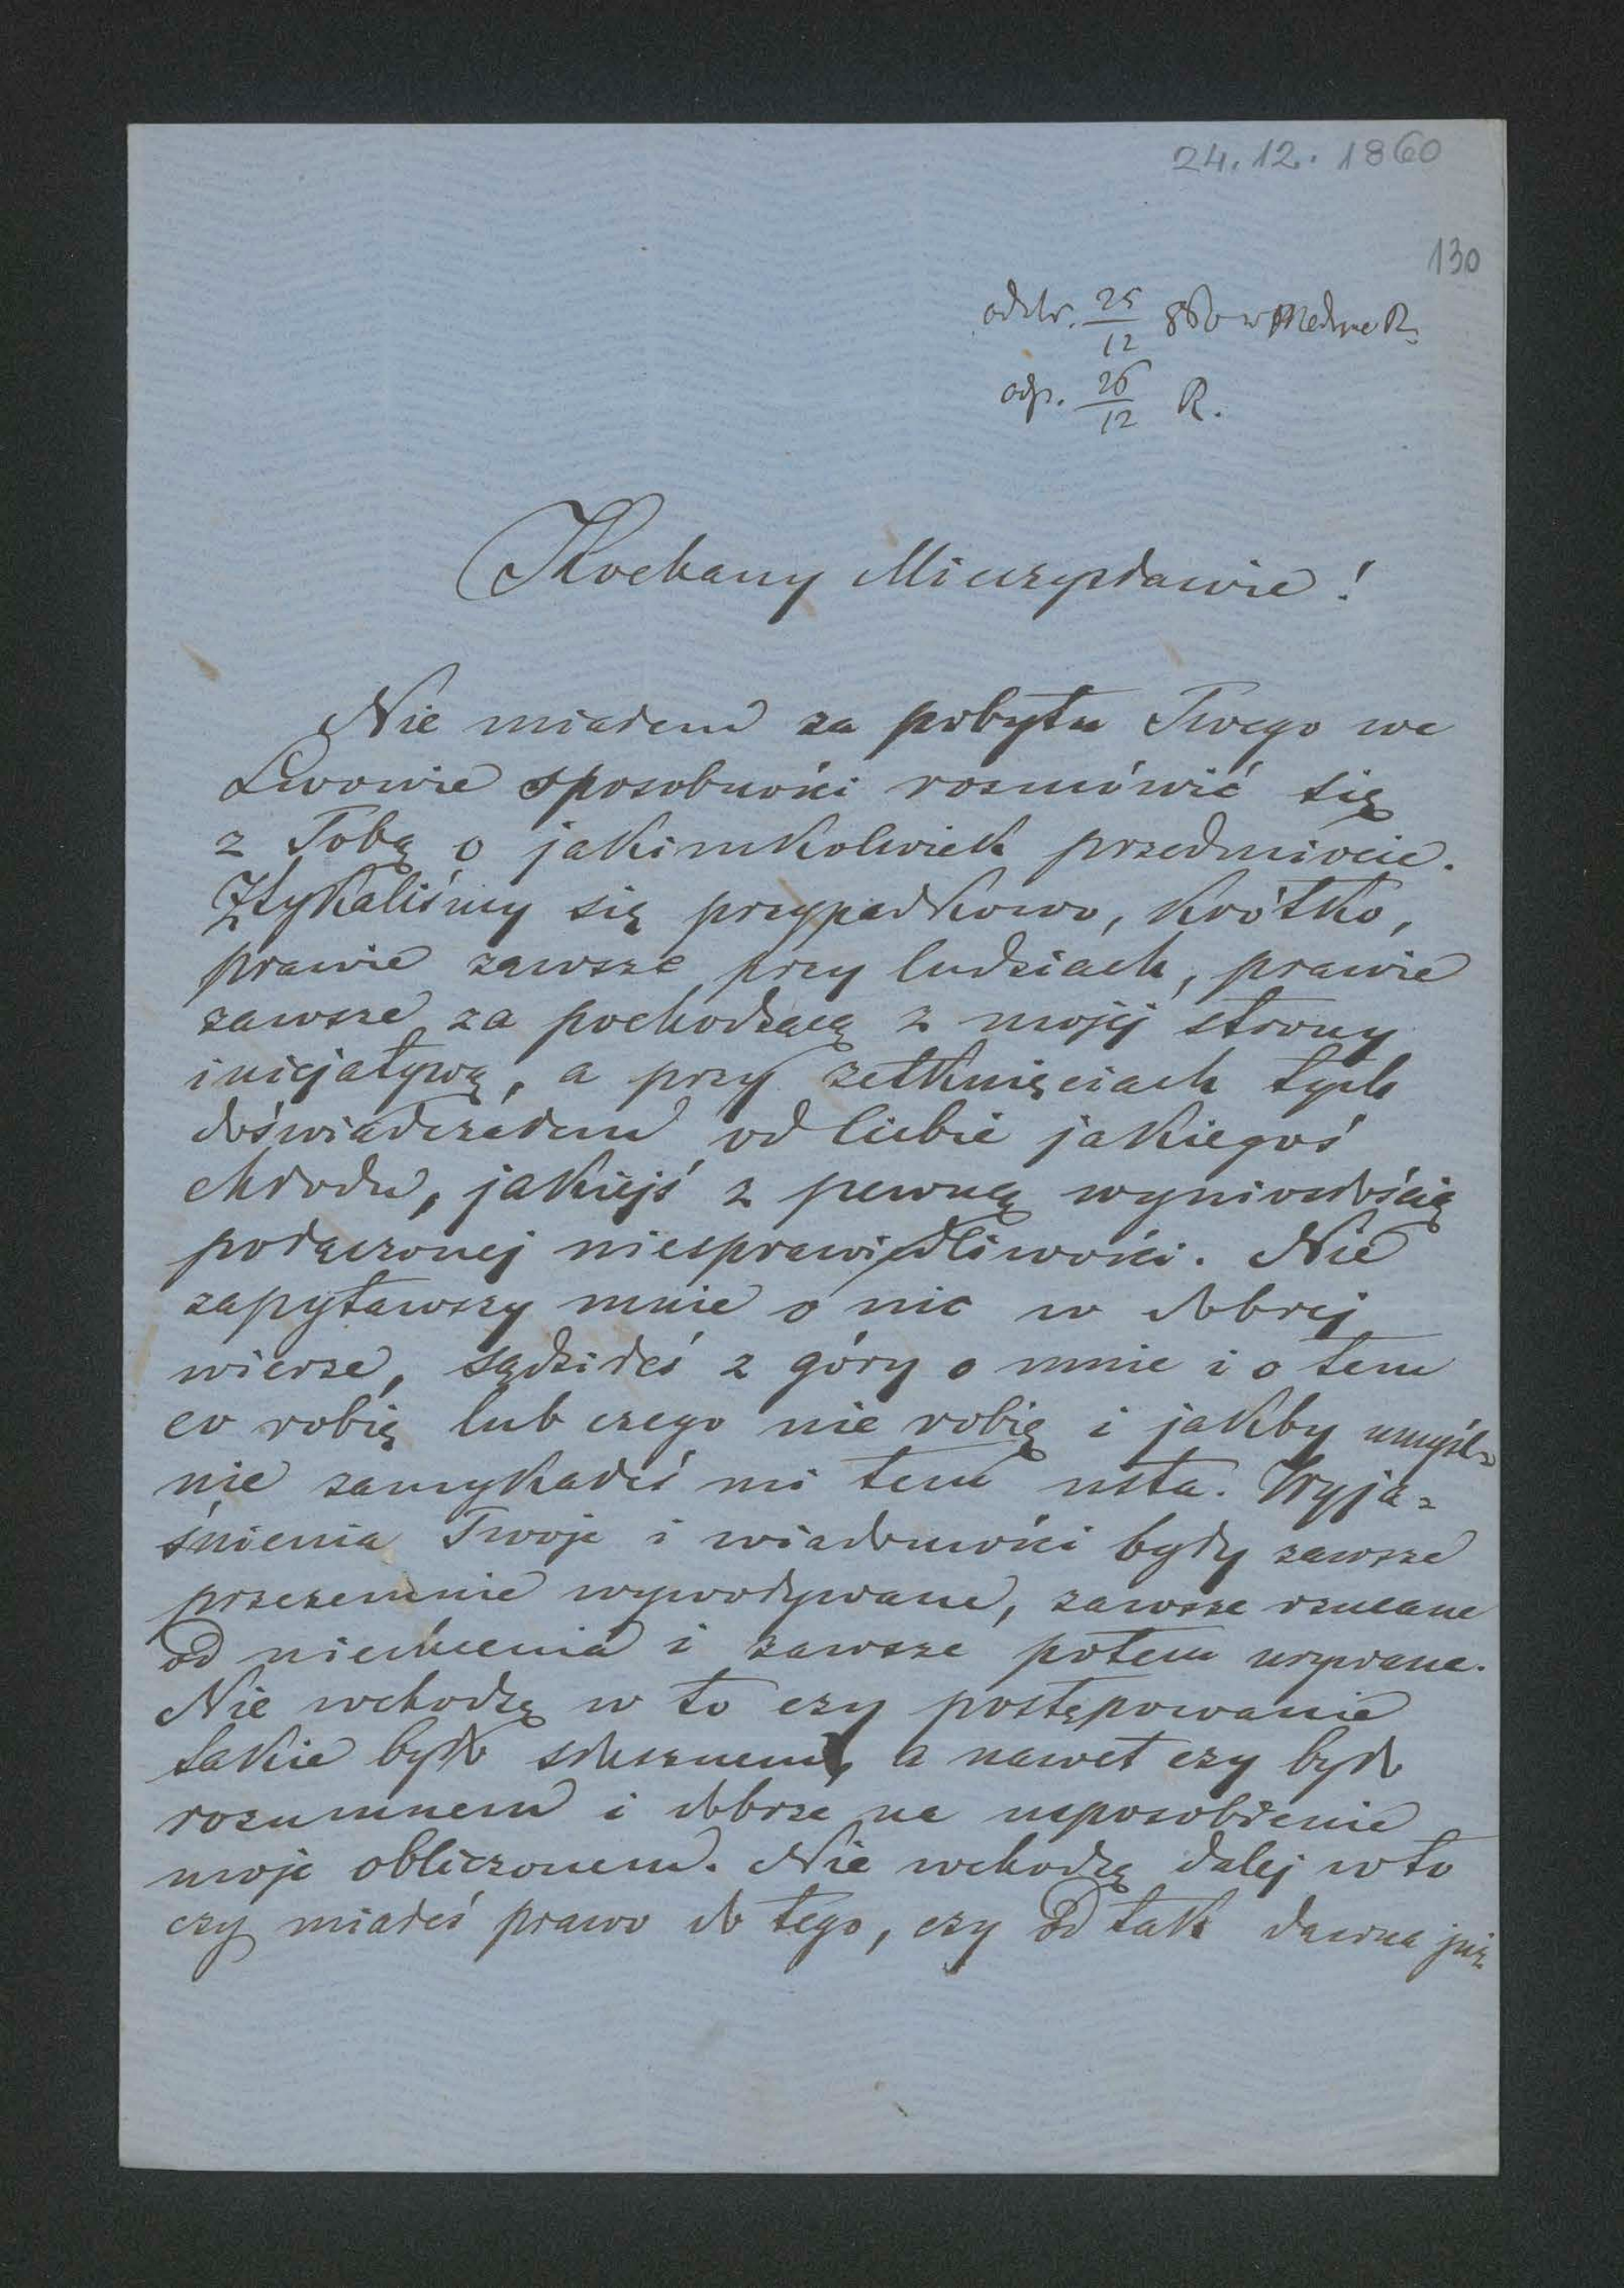 24.12.1860
130
odebr. 25/12 860 w Medyce R.
odp. 26/12 R.
Kochany Mieczysławie!
Nie miałem za pobytu Twego we
Lwowie sposobności rozmówić się
z Tobą o jakimkolwiek przedmiocie.
Ztykaliśmy się przypadkowo, krótko,
prawie zawsze przy ludziach, prawie
zawsze za pochodzącą z mojéj strony
inicjatywą, a przy zetknięciach tych
doświadczałem od Ciebie jakiegoś
chłodu, jakiejś z pewną wyniosłością
połączonej niesprawiedliwości. Nie
zapytawszy mnie o nic w dobrej
wierze, sądziłeś z góry o mnie i o tem
co robię lub czego nie robię i jakby umyśl=
nie zamykałeś mi tem usta. Wyja=
śnienia Twoje i wiadomości były zawsze
przezemnie wywoływane, zawsze rzucane
od niechcenia i zawsze potem urywane.
Nie wchodzę w to czy postępowanie
takie było słusznem, a nawet czy było
rozumnem i dobrze na usposobienie
moje obliczonem. Nie wchodzę dalej w to
czy miałeś prawo do tego, czy od tak dawna już